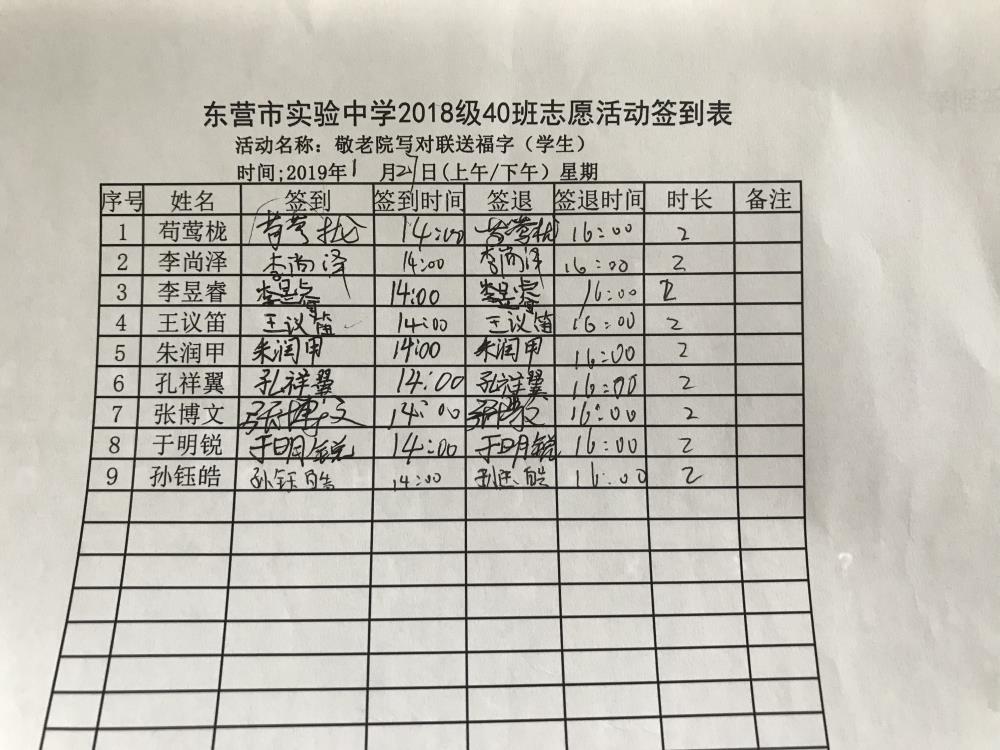 东营市实验中学2018级40班志愿活动签到表
活动名称：敬老院写对联送福字（学生）
时间;2019年1月27日(上午/下午）星期
序号 姓名 签到 签到时间 签退 签退时间 时长 备注
1 苟莺栊 苟莺栊 14:00 苟莺栊 16:00 2
2 李尚泽 李尚泽 14:00 李尚泽 16:00 2
3 李昱睿 李昱睿 14:00 李昱睿 16:00 2
4 王议笛 王议笛 14:00 王议笛 16:00 2
5 朱润甲 朱润甲 14:00 朱润甲 16:00 2
6 孔祥翼 孔祥翼 14:00 孔祥翼 16:00 2
7 张博文 张博文 14:00 张博文 16:00 2
8 于明锐 于明锐 14:00 于明锐 16:00 2
9 孙钰皓 孙钰皓 14:00 孙钰皓 16:00 2